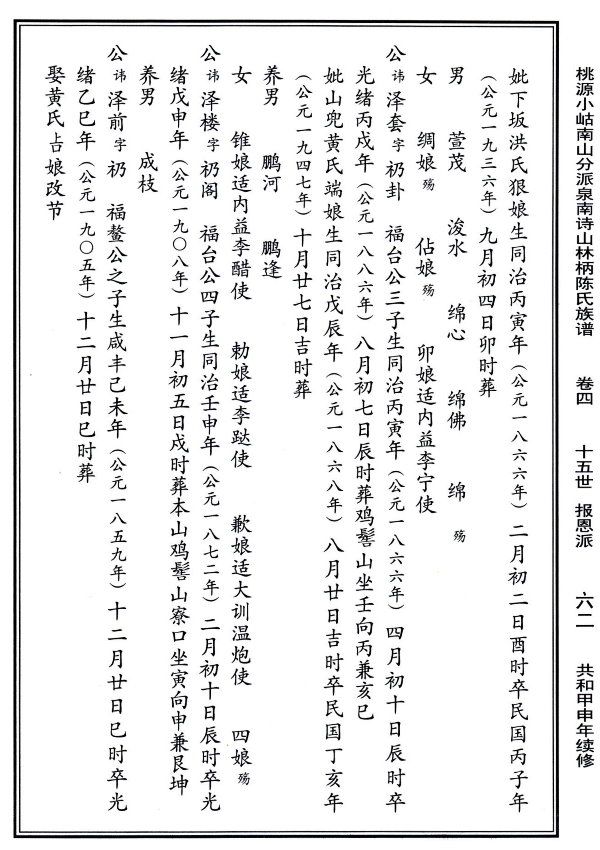 桃源小岵南山分派泉南诗山林柄陈氏族谱 卷四 十五世 报恩派 六二 共和甲申年续修
妣下坂洪氏狠娘生同治丙寅年（公元一八六六年）二月初二日酉时卒民国丙子年
（公元一九三六年）九月初四日卯时葬
男 萱茂 浚水 绵心 绵佛 绵 殇
女 绸娘殇 佔娘殇 卯娘适内益李宁使
公讳泽套字礽卦 福台公三子生同治丙寅年（公元一八六六年）四月初十日辰时卒
光绪丙戌年（公元一八八六年）八月初七日辰时葬鸡髻山坐壬向丙兼亥巳
妣山兜黄氏端娘生同治戊辰年（公元一八六八年）八月廿日吉时卒民国丁亥年
（公元一九四七年）十月廿七日吉时葬
养男 鹏河 鹏逢
女 锥娘适内益李醋使 勅娘适李跶使 歉娘适大训温炮使 四娘殇
公讳泽楼字礽阁 福台公四子生同治壬申年（公元一八七二年）二月初十日辰时卒光
绪戊申年（公元一九〇八年）十一月初五日戌时葬本山鸡髻山寮口坐寅向申兼艮坤
养男 成枝
公讳泽前字礽 福鳌公之子生咸丰己未年（公元一八五九年）十二月廿日巳时卒光
绪乙巳年（公元一九〇五年）十二月廿日巳时葬
娶黄氏占娘改节